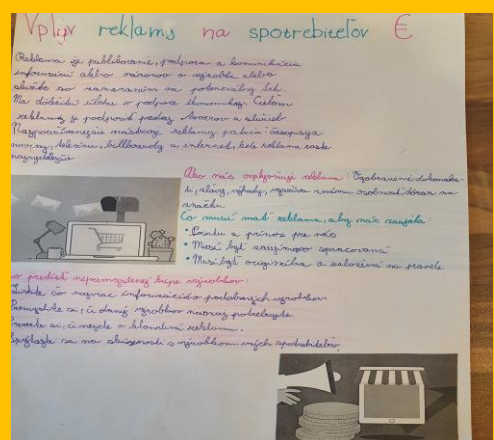 Vplyv reklamy na spotrebiteľov €
Reklama je publikovanie, podpora a komunikácia
informácií alebo názorov o výrobku alebo
službe so zameraním na potenciálny
Má dôležitú úlohu v podpore ekonomiky. Cieľom
reklamy je podporiť predaj tovarov a služieb
Najpoužívanejšie nástroje reklamy patria: časopisy
noviny, televízia, billboardy a internet, kde reklama
Ako nás ovplyvňuje reklama:
slávy, výhody, dôraz na
značku
Čo musí mať reklama, aby nás zaujala:
• a prínos pre nás
• Musí byť zaujímavo spracovaná
• Musí byť originálna a založená na pravde
predísť nepremyslenej kúpe výrobkov:
čo najviac informácií o podobných výrobkoch
si, či daný výrobok naozaj potrebujete
si, či nejde o klamlivú reklamu.
sa na skúsenosti s výrobkom iných spotrebiteľov.